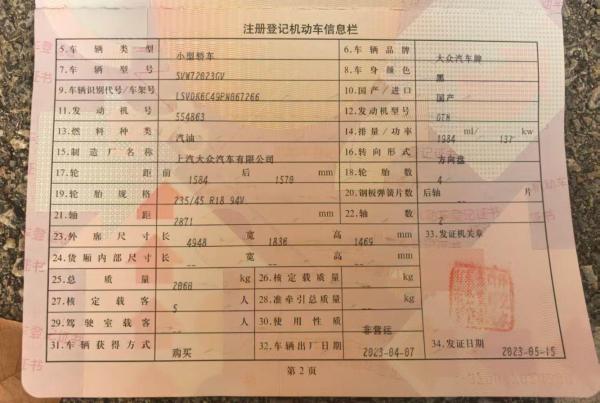 注册登记机动车信息栏
5.车辆类型 小型轿车 6.车辆品牌 大众汽车牌
7.车辆型号 SVW72023GV 8.车身颜色 黑
9.车辆识别代号/车架号 LSVDK6C49PN067266 10.国产/进口 国产
11.发动机号 554863 12.发动机型号
13.燃料种类 汽油 14.排量/功率 1984 ml/ 137 kw
15.制造厂名称 上汽大众汽车有限公司 16.转向形式 方向盘
17.轮距 前 1584 后 1570 mm 18.轮胎数 4
19.轮胎规格 235/45 R18 94V 20.钢板弹簧片数 后轴 -- 片
21.轴距 2871 mm 22.轴数 2
23.外廓尺寸 长 4948 宽 1836 高 1469 mm 33.发证机关章
24.货厢内部尺寸 长 -- 宽 -- 高 -- mm
25.总质量 2060 kg 26.核定载质量 -- kg
27.核定载客 5 人 28.准牵引总质量 -- kg
29.驾驶室载客 -- 人 30.使用性质 非营运
31.车辆获得方式 购买 32.车辆出厂日期 2023-04-07 34.发证日期 2023-05-15
第2页